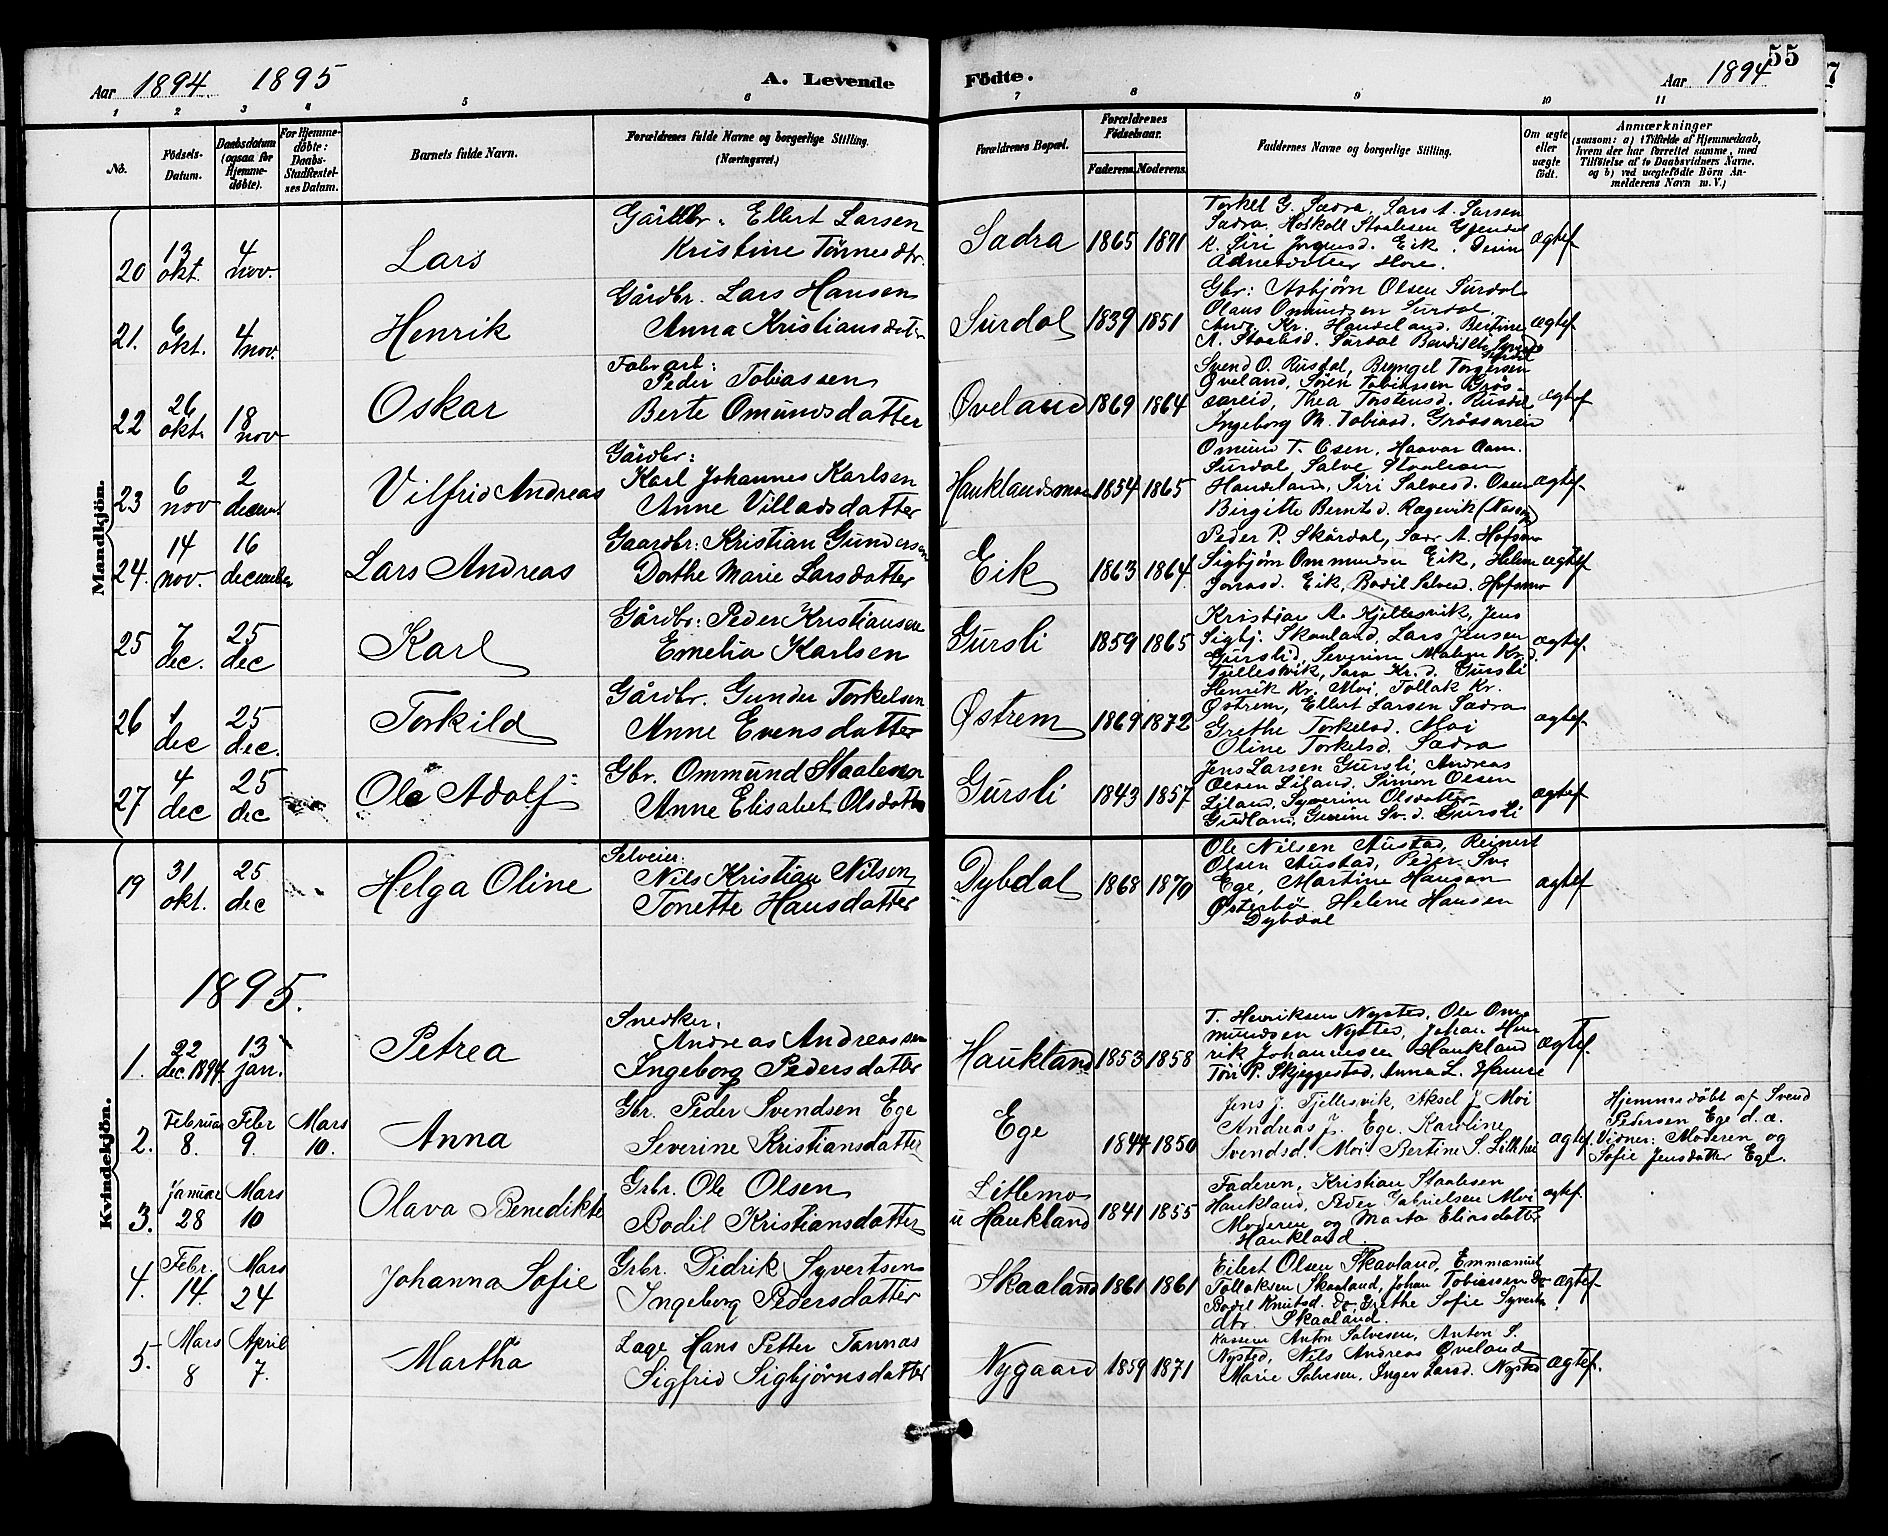 55
Aar 1894. 1895 A. Levende Fødte. Aar 1894
1 2 3 4 5 6 7 8 9 10 11
No. Fødsels-Datum. Daabsdatum (ogsaa for Hjemmedøbte). For Hjemmedøbte: Daabs-Stadfæstelses Datum. Barnets fulde Navn. Forældrenes fulde Navne og borgerlige Stilling. (Næringsvei.) Forældrenes Bopæl. Forældrenes Fødselsaar. Faderens. Moderens. Faddernes Navne og borgerlige Stilling. Om ægte eller uægte født. Anmærkninger (saasom: a) i Tilfælde af Hjemmedaab, hvem der har forrettet samme, med Tilføielse af to Daabsvidners Navne. og b) ved uægtefødte Børn Anmelderens Navn m. V.)
Mandkjön.
20 13 okt. 4 nov. Lars Gårdbr. Ellert Larsen Kristine Tönnesdtr. Sadra 1865 1871 Torkel G. Sadra, Lars A. Larsen
Sadra, Hoskoll Staalesen Gjendal
K. Siri Jorgensd. Eik.
Adnesdatter Hove. ægtef
21. 6 okt. 4 nov. Henrik Gårdbr. Lars Hansen Anna Kristiansdatter Surdal 1839 1851 Gbr: Asbjørn Olsen Surdal
Olaus Omundsen Surdal.
Andr. Kr. Handeland. Bertine
A. Staalesd. Surdal ægtef
22 26 okt. 18 nov Oskar Fabrarb: Peder Tobiassen Berte Omundsdatter Oveland 1869 1864 Svend O. Rusdal, Bryngel Torgersen
Oveland, Sören Tobiassen Grös-
sareid, Thea Torstensd. Rusdal
Ingeborg M. Tobiasd. Grössareid ægtef
23 6 nov 2 decem. Vilfrid Andreas Gårdbr: Karl Johannes Karlsen Anne Villadsdatter Hauklandsmoen 1854 1865 Omund T. Osen, Haavar Aam.
Surdal, Salve Staalesen
Handeland, Siri Salvesd. Osen
Birgitte Berntsd. Rægevik ægtef
24. 14 nov. 16 december Lars Andreas Gaardbr: Kristian Gundersen Dorthe Marie Larsdatter Eik 1863 1864 Peder P. Skårdal, Lars A. Hofsmo
Sigbjørn Ommundsen Eik, Helene
Jonasd. Eik, Bodil Salvesd. Hofsmo ægtef
25 7 dec. 25 dec Karl Gårdbr: Peder Kristiansen Emelia Karlsen Gursli 1859 1865 Kristian A. Kjellesvik, Jens
Sigbj. Skaaland, Lars Jensen
Gurslid, Severine Malene Kr.d.
Tjellesvik, Sara Kr. d. Gursli ægtef.
26 1 dec 25 dec. Torkild Gårdbr. Gunder Torkelsen Anne Evensdatter Østrem 1869 1872 Henrik Kr. Moi, Tollak Kr.
Østrem, Ellert Larsen Sadra
Grethe Torkelsd. Moi
Oline Torkelsd. Sadra ægtef
27 4 dec 25 dec Ole Adolf Gbr. Ommund Staalesen Anne Elisabet Olsdatter Gursli 1843 1857 Jens Larsen Gursli, Andreas
Olsen Liland, Simon Olsen
Liland, Syverine Olsdatter
Gudland, Gunine Sv. d. Gursli ægtef
Kvindekjön.
19 31 okt. 25 dec Helga Oline Selveier: Nils Kristian Nilsen Tonette Hansdatter Dybdal 1868 1870 Ole Nilsen Austad, Reinert
Olsen Austad, Peder Sv.
Ege, Martine Hansen
Østerbø, Helene Hansen
Dybdal ægtef
1895.
1. 22 dec. 1894 13 jan. Petrea Snedker. Andreas Andreassen Ingeborg Pedersdatter Haukland 1853 1858 T. Henriksen Nysted, Ole Om-
mundsen Nysted, Johan Hen-
rik Johannesen Haukland
Tori P. Skjeggestad, Anna L. Hamre ægtef.
2. Februar 8. Febr 9. Mars 10. Anna Gbr. Peder Svendsen Ege Severine Kristiansdatter Ege 1844 1850 Jens J. Tjellesvik, Aksel J. Moi
Andreas J. Ege. Karoline
Svendsd. Moi Bertine S. ægtef. Hjemmedøbt af Svend
Pedersen Ege d.æ.
Vidner: Moderen og
Sofie Jensdatter Ege.
3. Januar 28 Mars 10 Olava Benedikte Grbr. Ole Olsen Bodil Kristiansdatter Litlemo u Haukland 1841 1855 Faderen, Kristian Staalesen
Haukland, Peder Gabrielsen Moi
Moderen og Marta Eliasdatter
Haukland. ægtef.
4. Febr. 14. Mars 24 Johanna Sofie Grbr. Didrik Syvertsen Ingeborg Pedersdatter Skaaland 1861 1861 Eilert Olsen Skaaland, Emmanuel
Tollaksen Skaaland, Johan Tobiassen Do
Bodil Knutsd. Do, Grethe Sofie Syverts
dtr. Skaaland. ægtef
5. Mars 8 April 7. Martha Læge Hans Petter Tannæs Sigfrid Sigbjørnsdatter Nygaard 1859 1871 Anton Salvesen, Anton S.
Nysted, Nils Andreas Oveland
Marie Salvesen, Inger Larsd. Nysted ægtef.